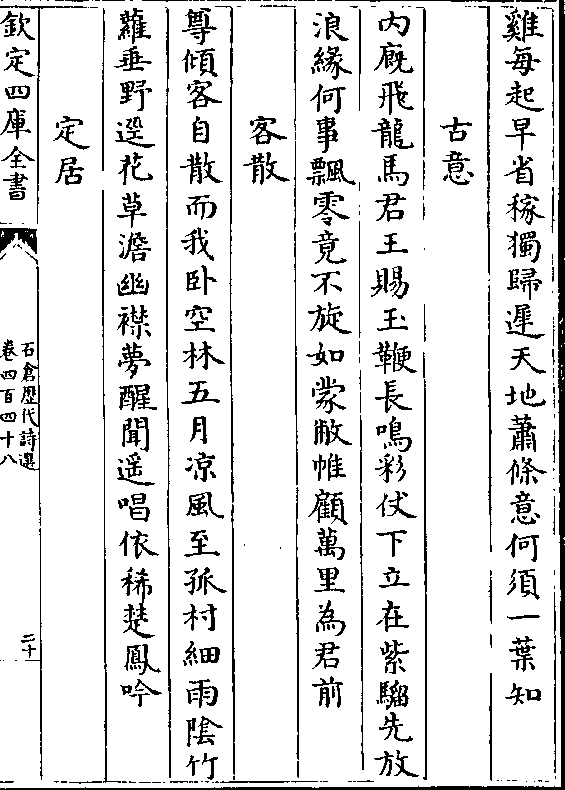 雞每起早省稼獨歸遲天地蕭條意何須一葉知
古意
内廐飛龍馬君王賜玉鞭長鳴彩仗下立在紫騮先放
浪緣何事飄零竟不旋如蒙敝帷顧萬里為君前
客散
尊傾客自散而我卧空林五月凉風至孤村細雨隂竹
蘿垂野逕花草澹幽襟夢醒聞遥唱依稀楚鳳吟
定居
欽定四庫全書
石倉歴代詩選
卷四百四十八
二十